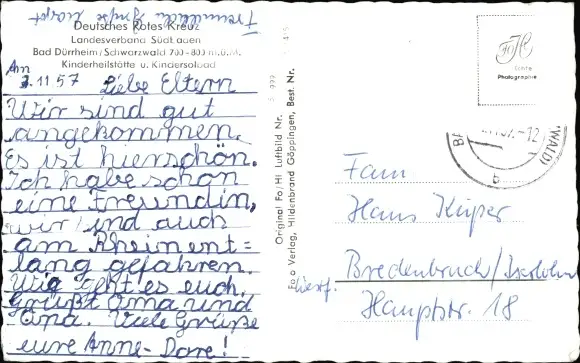 Freundliche Grüße
Deutsches Rotes Kreuz
Landesverband Südbaden
Bad Dürrheim/Schwarzwald 700-800 m.ü.M.
Kinderheilstätte u. Kindersolbad
Am
3.11 57 Liebe Eltern
Wir sind gut
angekommen.
Es ist hier schön.
Ich habe schon
eine Freundin,
wir sind auch
am Rhein ent=
lang gefahren.
Wie geht es euch.
Grüßt Oma und
Opa. Viele Grüße
eure Anne-Dore!
Original Fo/Hi Luftbild Nr.
Foto Verlag, Hildenbrand Göppingen, Best. Nr.
FoHi
Echte
Photographie
WALD)
-12
b
Fam
Hans Küper
Bredenbruch/Iserlohn
Hauptstr. 18